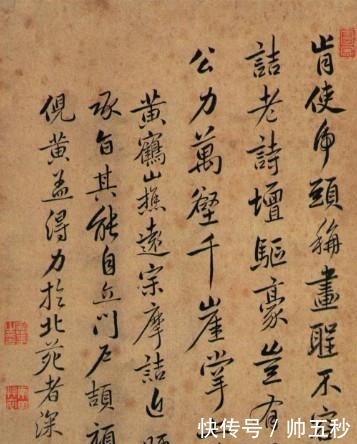 肯使虎頭稱畫聖不容
詰老詩壇驅豪豈有
公力萬壑千崖掌
黃鶴山樵遠宗摩詰近師
承旨其能自立門戶頡頏
倪黃蓋得力於北苑者深
快传号 / 帅五秒